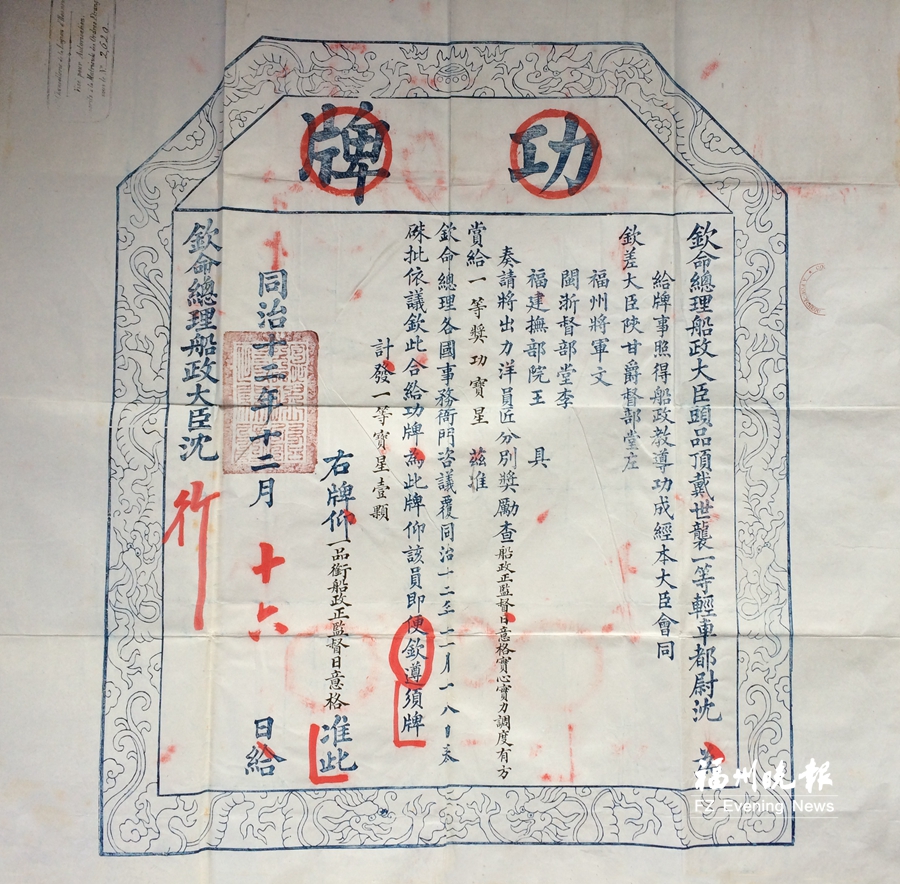 功牌
欽命總理船政大臣頭品頂戴世襲一等輕車都尉沈
給牌事照得船政教導功成經本大臣會同
欽差大臣陝甘爵督部堂左
福州將軍文
閩浙督部堂李
福建撫部院王 具
奏請將出力洋員匠分別獎勵查船政正監督日意格實心實力調度有方
賞給一等獎功寶星 茲准
欽命總理各國事務衙門咨議覆同治十二年十二月十八日奉
硃批依議欽此合給功牌為此牌仰該員即便欽遵須牌
計發一等寶星壹顆
右牌仰一品銜船政正監督日意格 准此
同治十二年十二月 十六 日給
欽命總理船政大臣沈 行
福州晚報
FZ Evening News